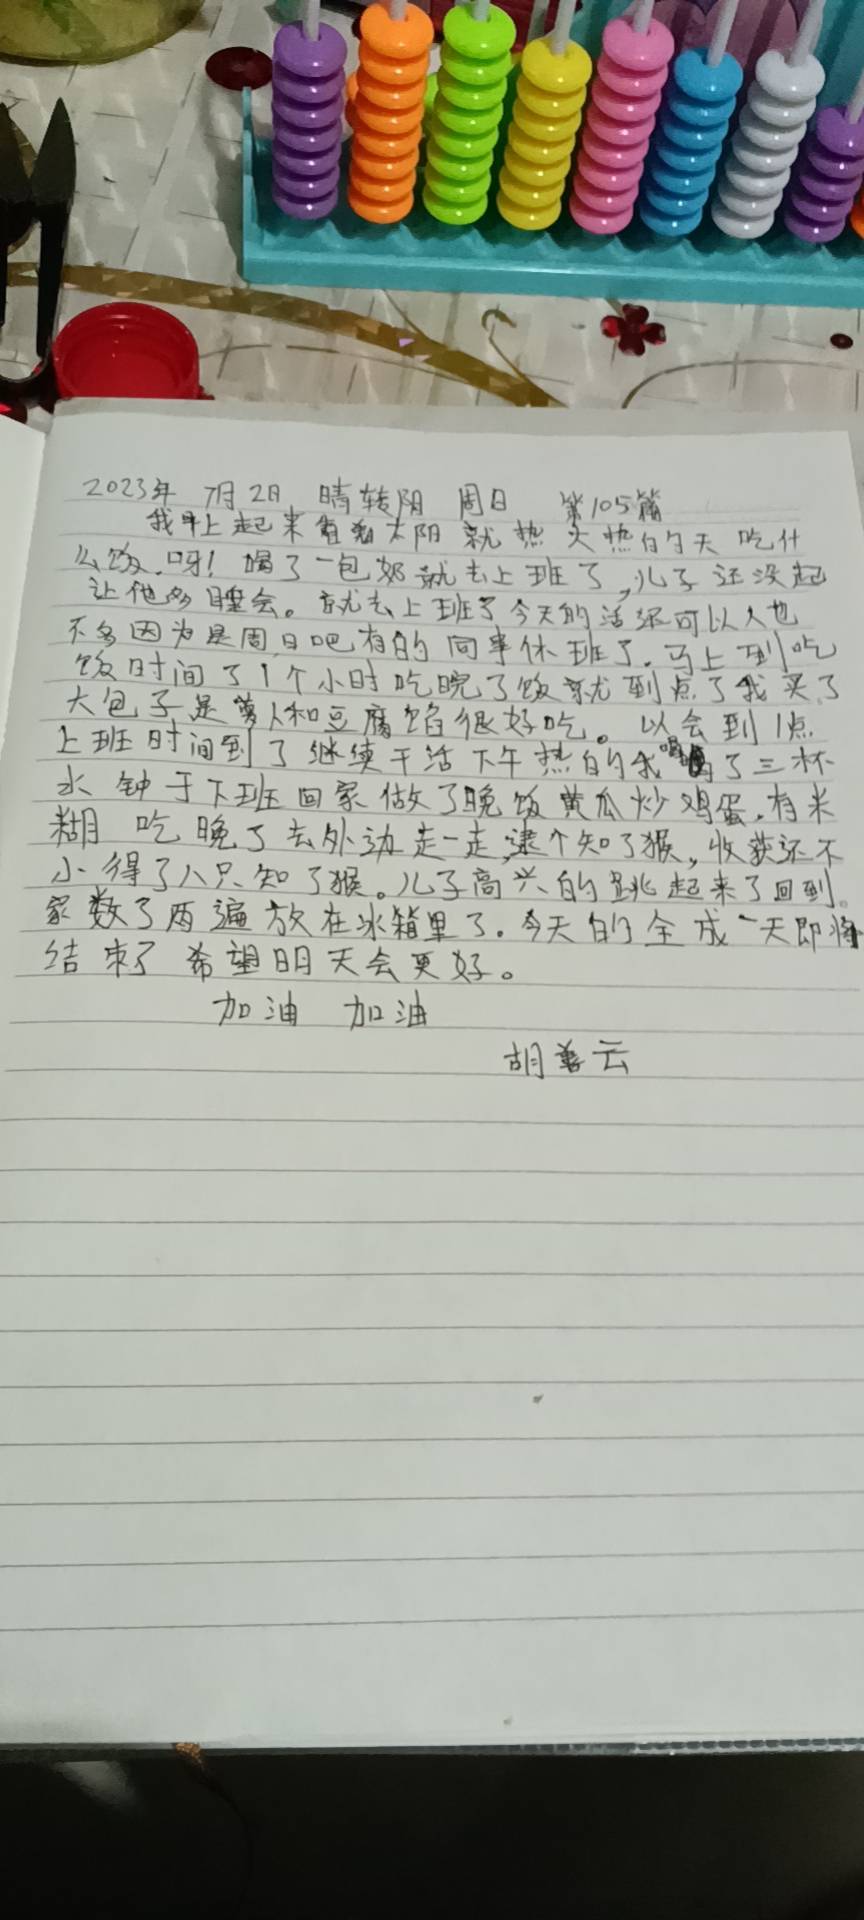 2023年 7月2日 晴转阴 周日 第105篇
我早上起来看到太阳就热 火热的天吃什
么饭呀！喝了一包奶就去上班了，儿子还没起
让他多睡会。就去上班了今天的活还可以人也
不多因为是周日吧有的同事休班了.马上到吃
饭时间了1个小时吃晚了饭就到点了我买了
大包子是萝卜和豆腐馅很好吃。以会到1点
上班时间到了继续干活下午热的我喝了三杯
水 钟于下班回家做了晚饭黄瓜炒鸡蛋.有米
糊 吃晚了去外边走一走逮个知了猴，收获还不
小得了八只知了猴。儿子高兴的跳起来了回到
家数了两遍放在冰箱里了.今天的全成一天即将
结束了 希望明天会更好。
加油 加油
胡善云